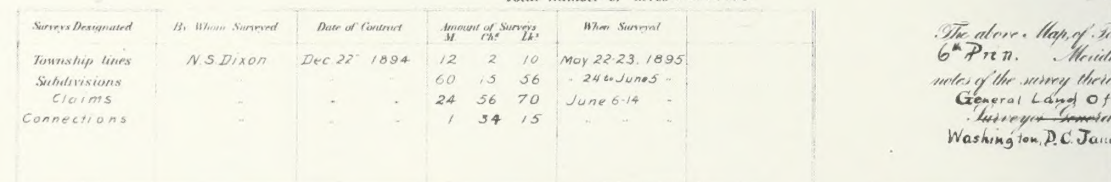 Total number of Acres
Surveys Designated By Whom Surveyed Date of Contract Amount of Surveys When Surveyed
M. Chs. Lks.
Township lines N.S. Dixon Dec. 22 1894 12 2 10 May 22-23, 1895
Subdivisions " " " 60 15 56 " 24 to June 5 "
Claims " " " 24 56 70 June 6-14 "
Connections " " " 1 34 15 " " "
The above Map, of
6th Prn. Merid
notes of the survey
General Land Of
Surveyor General
Washington, D.C.